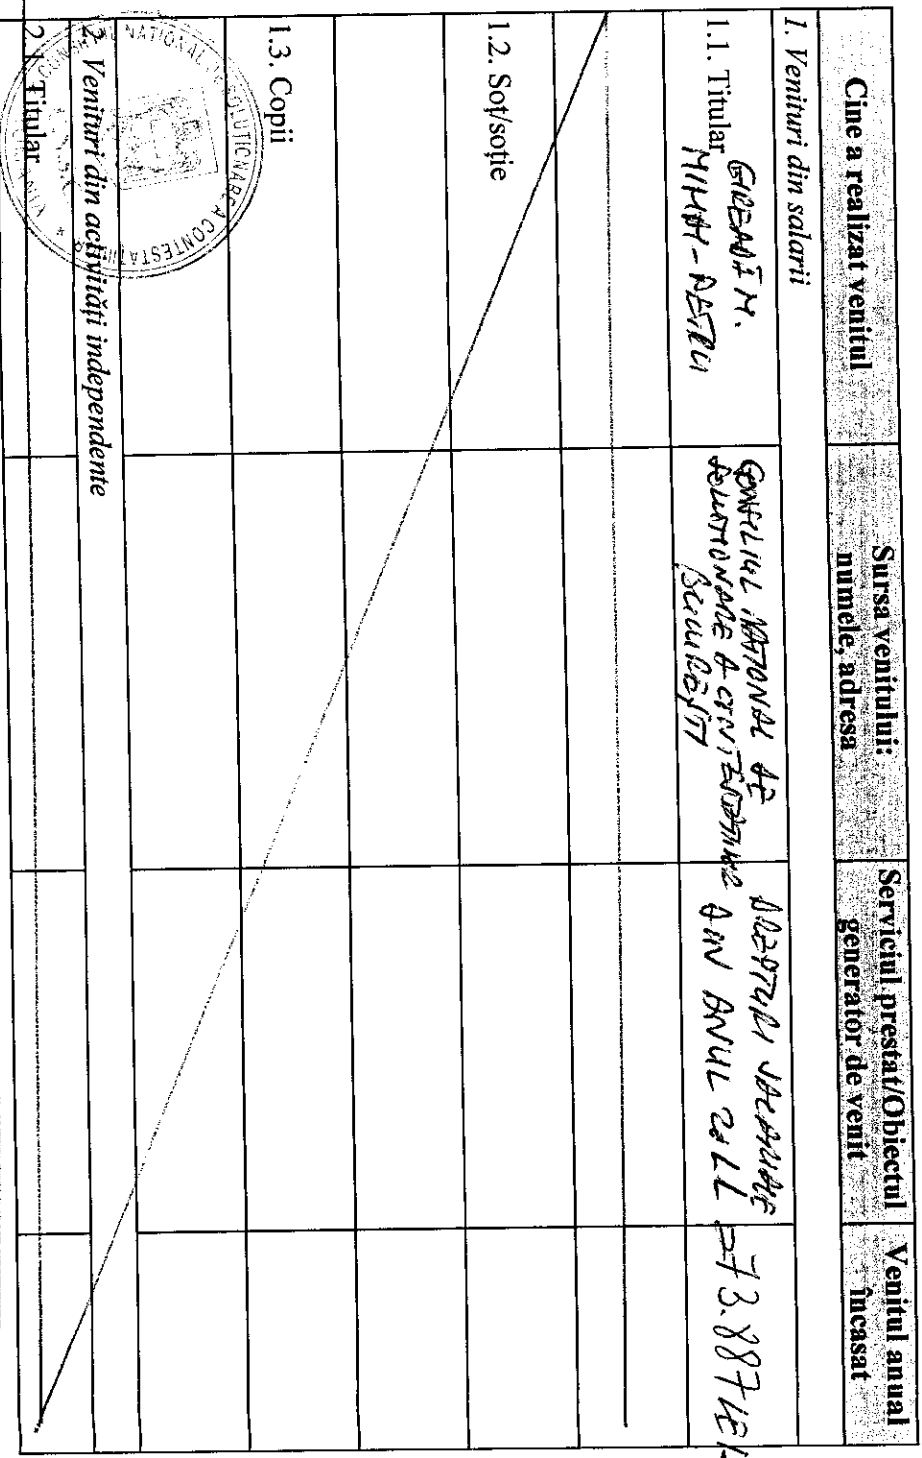 Cine a realizat venitul
Sursa venitului:
numele, adresa
Serviciul prestat/Obiectul
generator de venit
Venitul anual
încasat
1. Venituri din salarii
1.1. Titular
MIHAI-PETRU
CONSILIUL NATIONAL DE
SOLUTIONARE A CONTESTATIILOR
BUCUREȘTI
DREPTURI SALARIALE
DIN ANUL 2011
73.887 LEI
1.2. Soț/soție
1.3. Copii
2. Venituri din activități independente
2.1. Titular
NATIONAL DE SOLUTIONARE A CONTESTATII